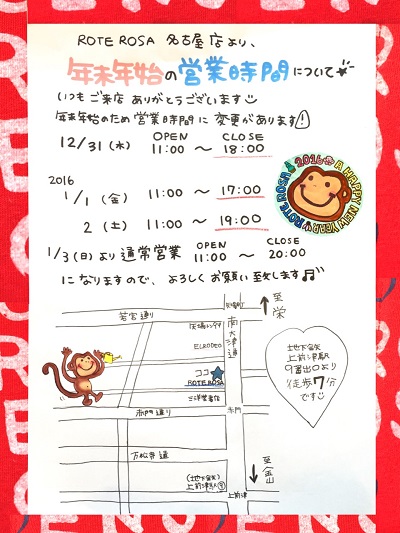 ROTE ROSA 名古屋店より、
年末年始の営業時間について
いつもご来店 ありがとうございます
年末年始のため 営業時間に 変更があります!
OPEN CLOSE
12/31(木) 11:00 〜 18:00
2016
1/1(金) 11:00 〜 17:00
2(土) 11:00 〜 19:00
OPEN CLOSE
1/3(日)より 通常営業 11:00 〜 20:00
になりますので、よろしくお願い致します♫
2016 A HAPPY NEW YEAR ROTE ROSA
矢場町
至 栄
若宮通り
南大津通
ELRODEO
ココ
ROTE ROSA
赤門通り
赤門
万松寺通
(地下鉄)
上前津駅 ⑨
上前津
至 金山
地下鉄
上前津駅
9番出口より
徒歩7分
です